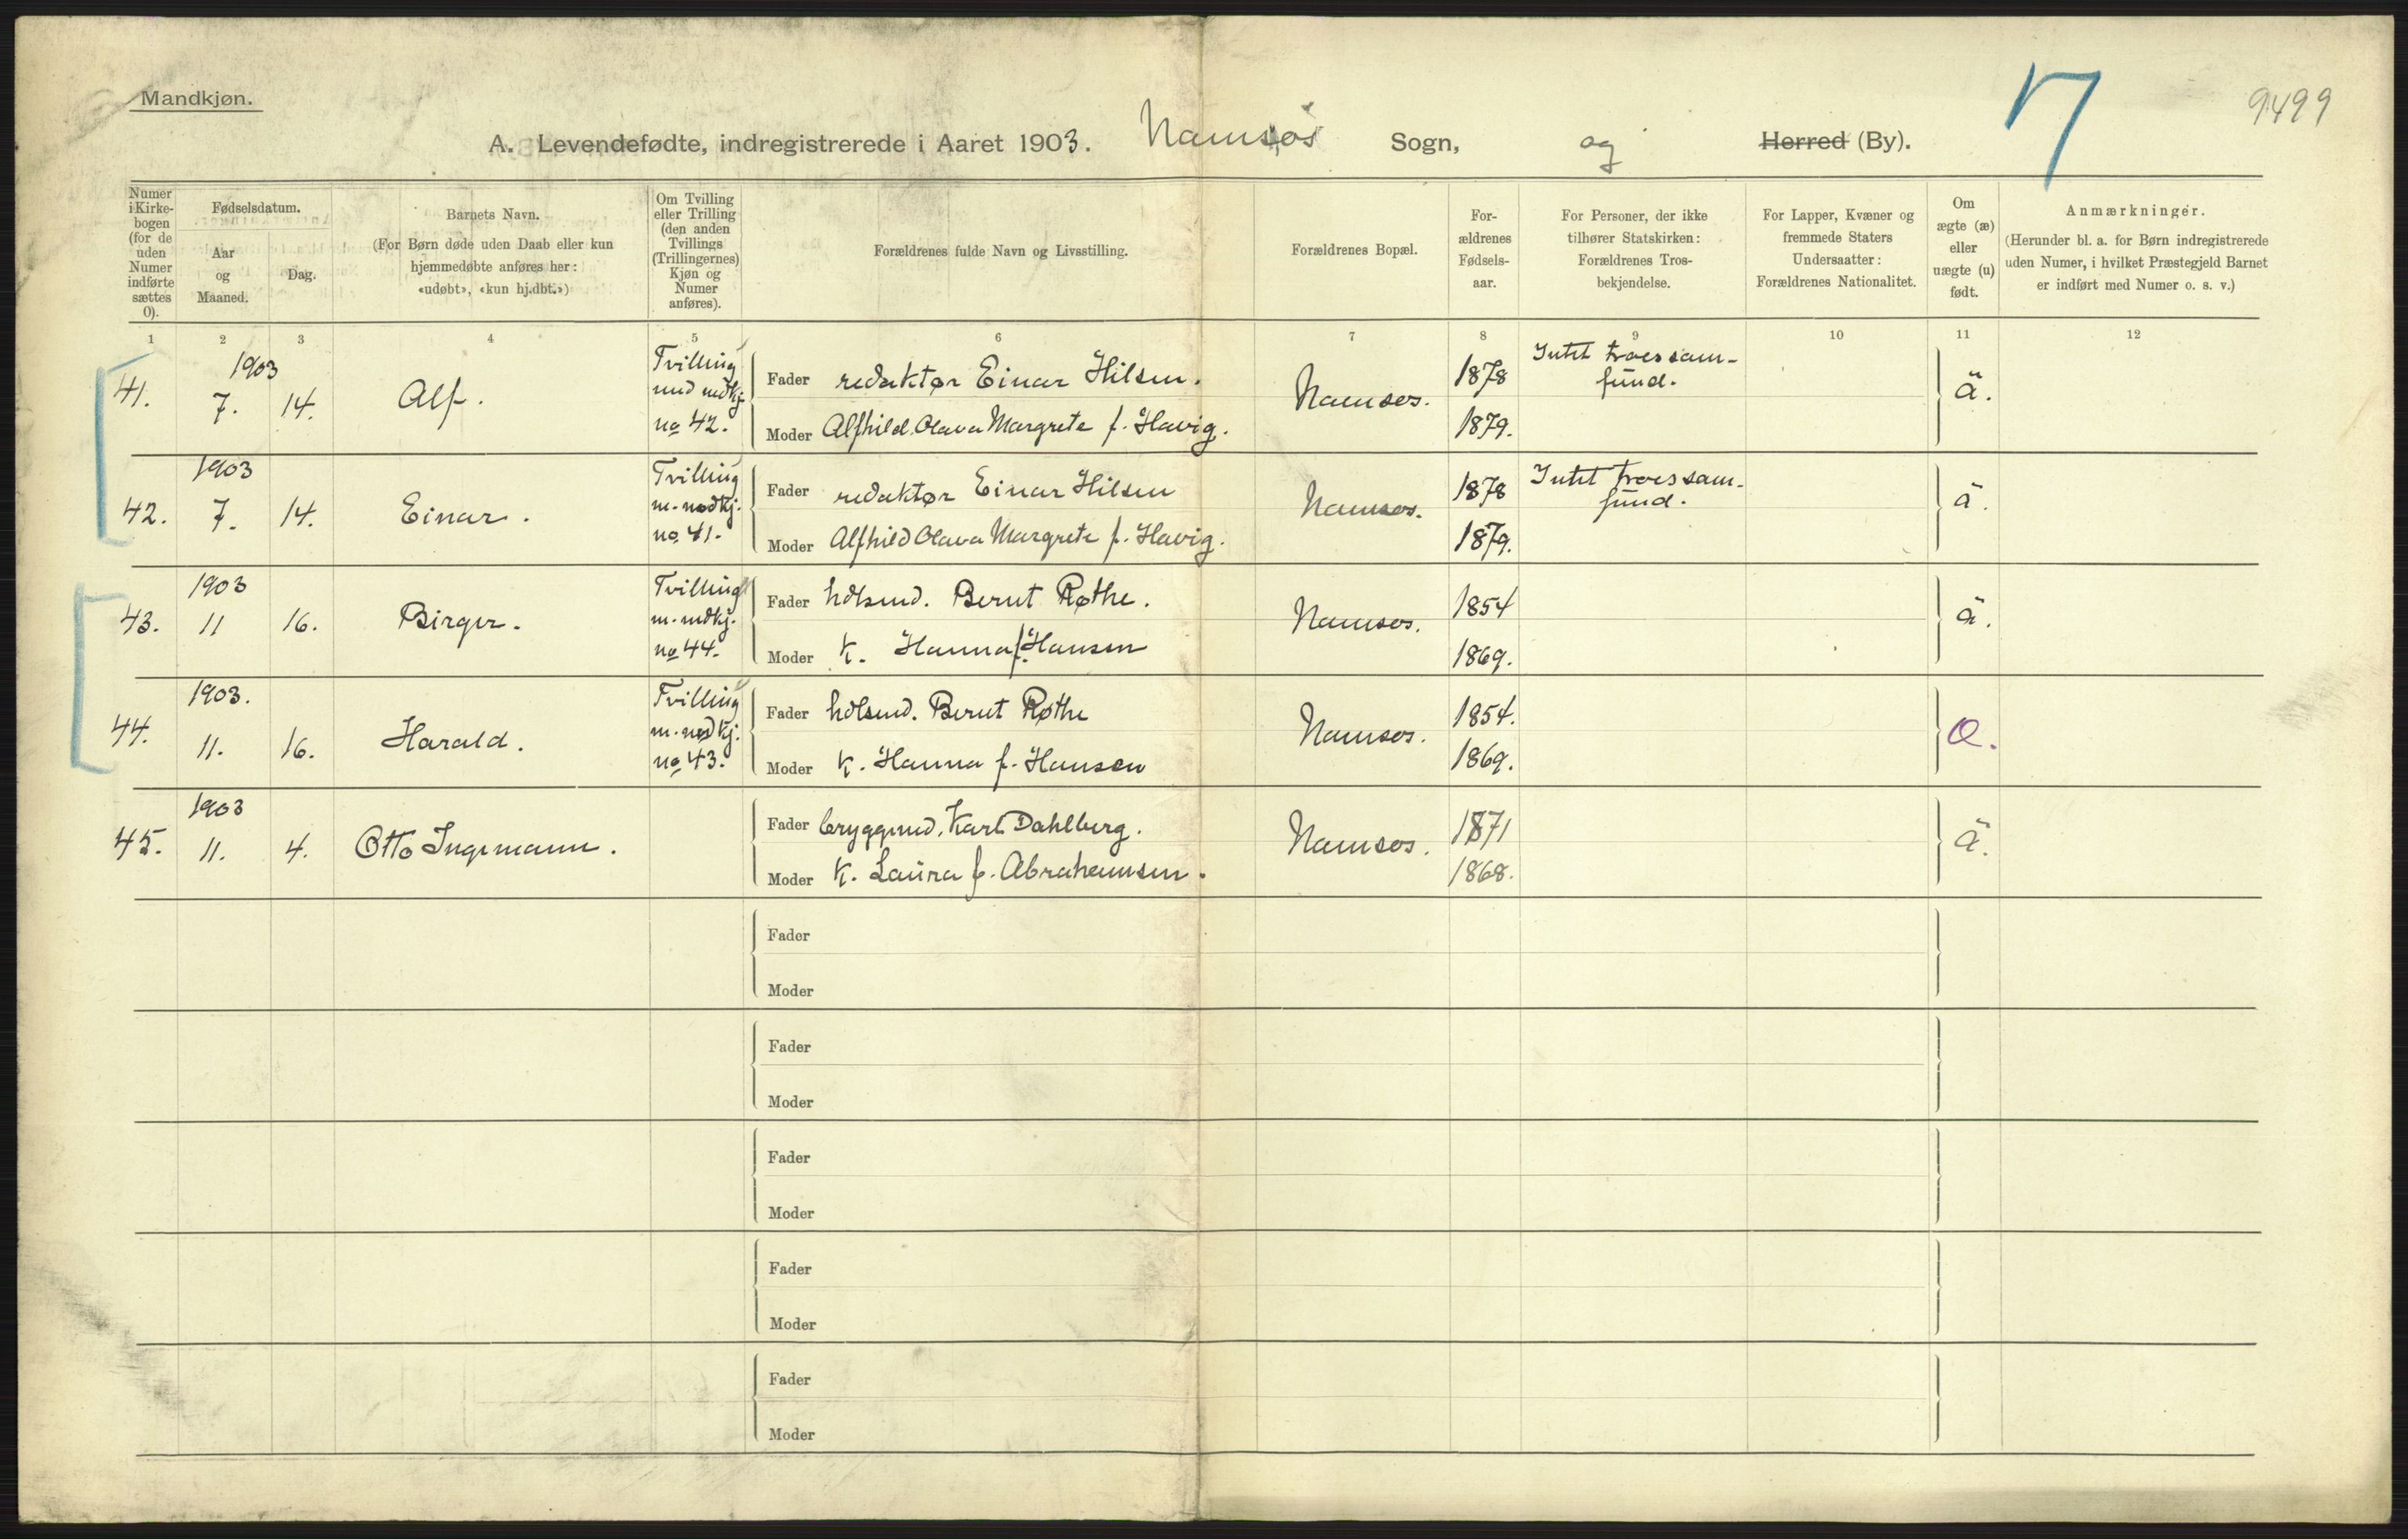 Mandkjøn.
9499
7
A. Levendefødte, indregistrerede i Aaret 1903. Namsos Sogn, og Herred (By).
Numer i Kirkebogen (for de uden Numer indførte sættes 0).
Fødselsdatum.
Aar og Maaned.
Dag.
Barnets Navn.
(For Børn døde uden Daab eller kun
hjemmedøbte anføres her:
«udøbt», «kun hj.dbt.»)
Om Tvilling
eller Trilling
(den anden
Tvillings
(Trillingernes)
Kjøn og
Numer
anføres).
Forældrenes fulde Navn og Livsstilling.
Forældrenes Bopæl.
For-
ældrenes
Fødsels-
aar.
For Personer, der ikke
tilhører Statskirken:
Forældrenes Tros-
bekjendelse.
For Lapper, Kvæner og
fremmede Staters
Undersaatter:
Forældrenes Nationalitet.
Om
ægte (æ)
eller
uægte (u)
født.
Anmærkninger.
(Herunder bl. a. for Børn indregistrerede
uden Numer, i hvilket Præstegjeld Barnet
er indført med Numer o. s. v.)
1 2 3 4 5 6 7 8 9 10 11 12
41. 1903 7. 14. Alf. Tvilling med medkj. no 42. Fader redaktør Einar Hilsen. Namsos. 1878 Intet troessam-
fund. ä.
Moder Alfhild Olava Margrete f. Havig. 1879.
42. 1903 7. 14. Einar. Tvilling m. medkj. no. 41. Fader redaktør Einar Hilsen Namsos. 1878 Intet troessam-
fund. ä.
Moder Alfhild Olava Margrete f. Havig. 1879.
43. 1903 11 16. Birger. Tvilling m. medkj. no 44. Fader hdlsmd. Bernt Røthe. Namsos. 1854 ä.
Moder K. Hanna f. Hansen 1869.
44. 1903. 11. 16. Harald. Tvilling m. medkj. no 43. Fader hdlsmd. Bernt Røthe Namsos. 1854.
Moder K. Hanna f. Hansen 1869.
45. 1903 11. 4. Otto Ingemann. Fader bryggemd. Karl Dahlberg. Namsos. 1871 ä.
Moder K. Laura f. Abrahamsen. 1868.
Fader
Moder
Fader
Moder
Fader
Moder
Fader
Moder
Fader
Moder